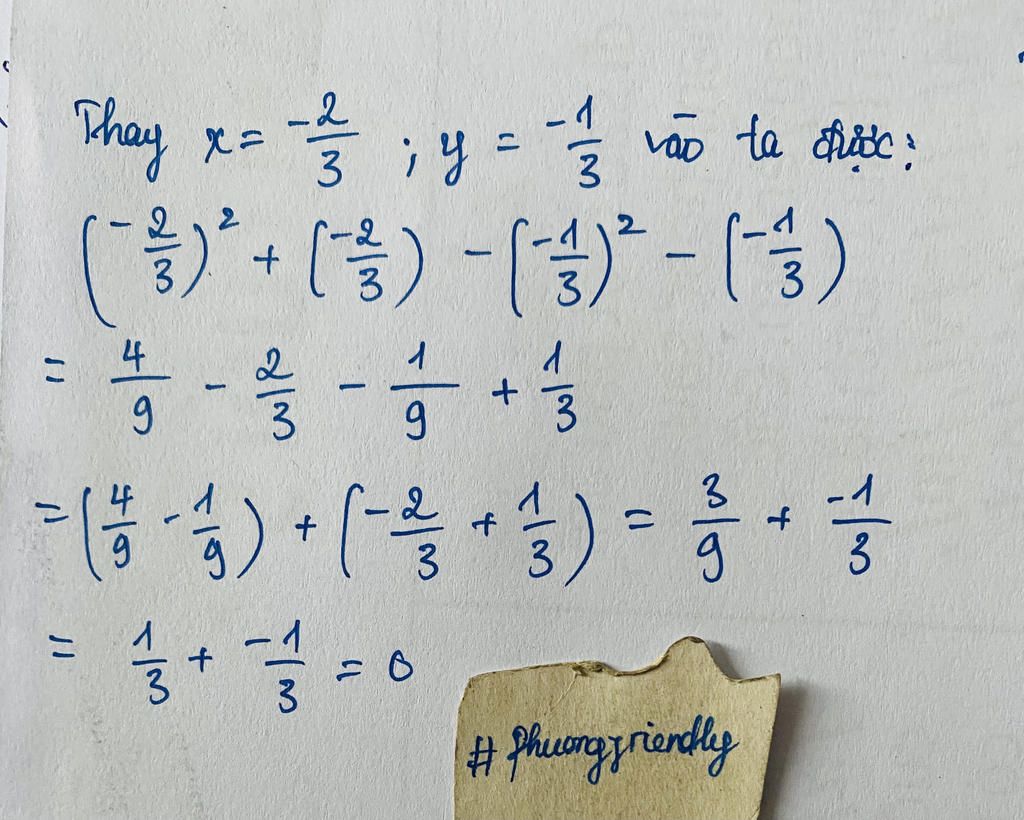 Thay x = -2/3 ; y = -1/3 vào ta được:
(-2/3)² + (-2/3) - (-1/3)² - (-1/3)
= 4/9 - 2/3 - 1/9 + 1/3
= (4/9 - 1/9) + (-2/3 + 1/3) = 3/9 + -1/3
= 1/3 + -1/3 = 0
# phuongfriendly